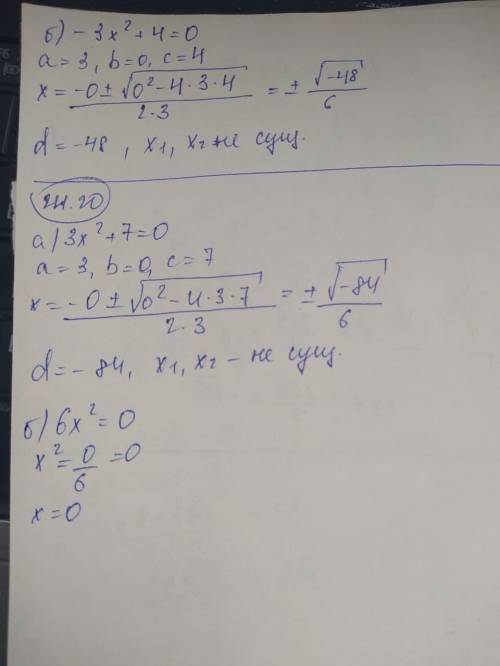 б) -3x²+4=0
a=3, b=0, c=4
x = (-0±√(0²-4·3·4))/(2·3) = ± √(-48)/6
d=-48, x₁, x₂ не сущ.
24.20
а) 3x²+7=0
a=3, b=0, c=7
x = (-0±√(0²-4·3·7))/(2·3) = ± √(-84)/6
d=-84, x₁, x₂ - не сущ.
б) 6x²=0
x²=0/6=0
x=0